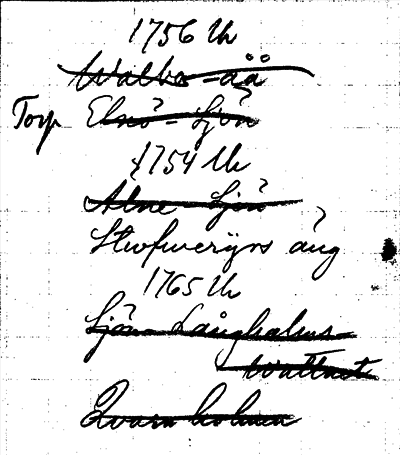 1756 Uh
Walbo-åå
Torp Elsnö-Sjön
1754 Uh
Alne Sjön
äng
1765 Uh
Sjön Långhalsen
Wattnet
Qvarn holmen